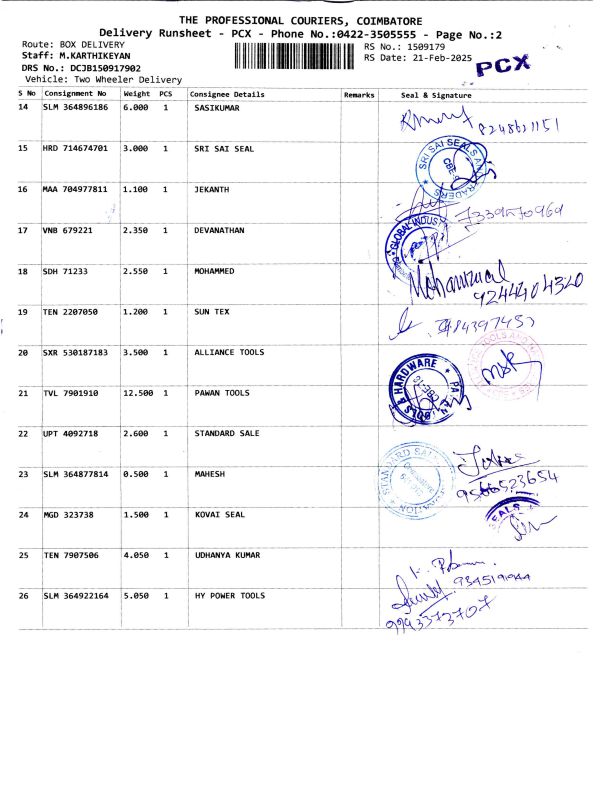 THE PROFESSIONAL COURIERS, COIMBATORE
Delivery Runsheet - PCX - Phone No.:0422-3505555 - Page No.:2
Route: BOX DELIVERY
Staff: M.KARTHIKEYAN
DRS No.: DCJB150917902
Vehicle: Two Wheeler Delivery
RS No.: 1509179
RS Date: 21-Feb-2025
PCX
S No Consignment No Weight PCS Consignee Details Remarks Seal & Signature
14 SLM 364896186 6.000 1 SASIKUMAR
8248621151
15 HRD 714674701 3.000 1 SRI SAI SEAL
SRI SAI SEALS AND TRADERS
16 MAA 704977811 1.100 1 JEKANTH
17 VNB 679221 2.350 1 DEVANATHAN
GLOBAL INDUS
18 SDH 71233 2.550 1 MOHAMMED
Mohammed
9244404320
19 TEN 2207050 1.200 1 SUN TEX
20 SXR 530187183 3.500 1 ALLIANCE TOOLS
21 TVL 7901910 12.500 1 PAWAN TOOLS
TOOLS & HARDWARE
22 UPT 4092718 2.600 1 STANDARD SALE
STANDARD SAL
23 SLM 364877814 0.500 1 MAHESH
9566523654
24 MGD 323738 1.500 1 KOVAI SEAL
SEALS
25 TEN 7907506 4.050 1 UDHANYA KUMAR
26 SLM 364922164 5.050 1 HY POWER TOOLS
9943373707